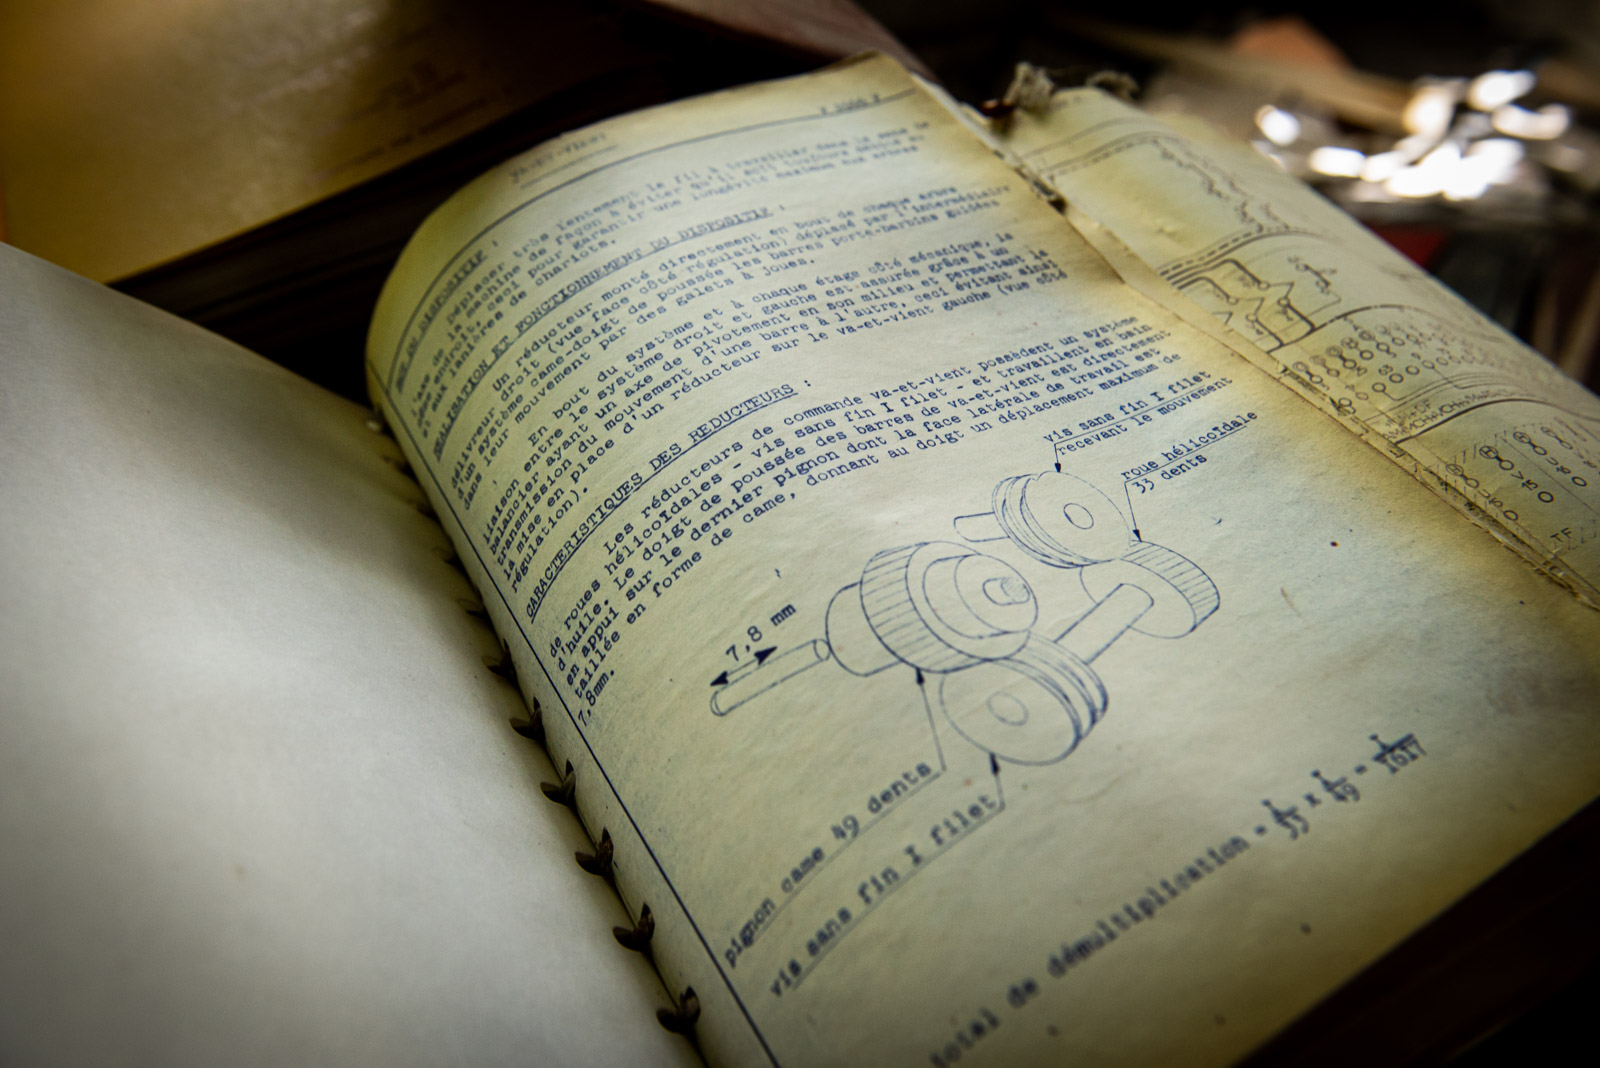 VA-ET-VIENT
BUT DU DISPOSITIF :
Déplacer très lentement le fil à travailler dans la
l'axe de la machine de façon à éviter qu'il
même endroit, ceci pour garantir une longévité maximum aux
et aux lanières de chariots.
REALISATION ET FONCTIONNEMENT DU DISPOSITIF :
Un réducteur monté directement en bout de chaque arbre
délivreur droit (vue face côté régulation) déplacé par l'intermédiaire
d'un système came-doigt de poussée les barres porte-barbins guidées
dans leur mouvement par des galets à joues.
En bout du système et à chaque étage côté mécanique, la
liaison entre le système droit et gauche est assurée grâce à un
balancier ayant un axe de pivotement en son milieu et permettant la
transmission du mouvement d'une barre à l'autre, ceci évitant ainsi
la mise en place d'un réducteur sur le va-et-vient gauche (vue côté
régulation).
CARACTERISTIQUES DES REDUCTEURS :
Les réducteurs de commande va-et-vient possèdent un système
de roues hélicoïdales - vis sans fin I filet - et travaillent en bain
d'huile. Le doigt de poussée des barres de va-et-vient est directement
en appui sur le dernier pignon dont la face latérale de travail est
taillée en forme de came, donnant au doigt un déplacement maximum de
7,8mm.
vis sans fin I filet
recevant le mouvement
roue hélicoïdale
33 dents
7,8 mm
pignon came 49 dents
vis sans fin I filet
total de démultiplication = I/33 x I/49 = I/1617
TF